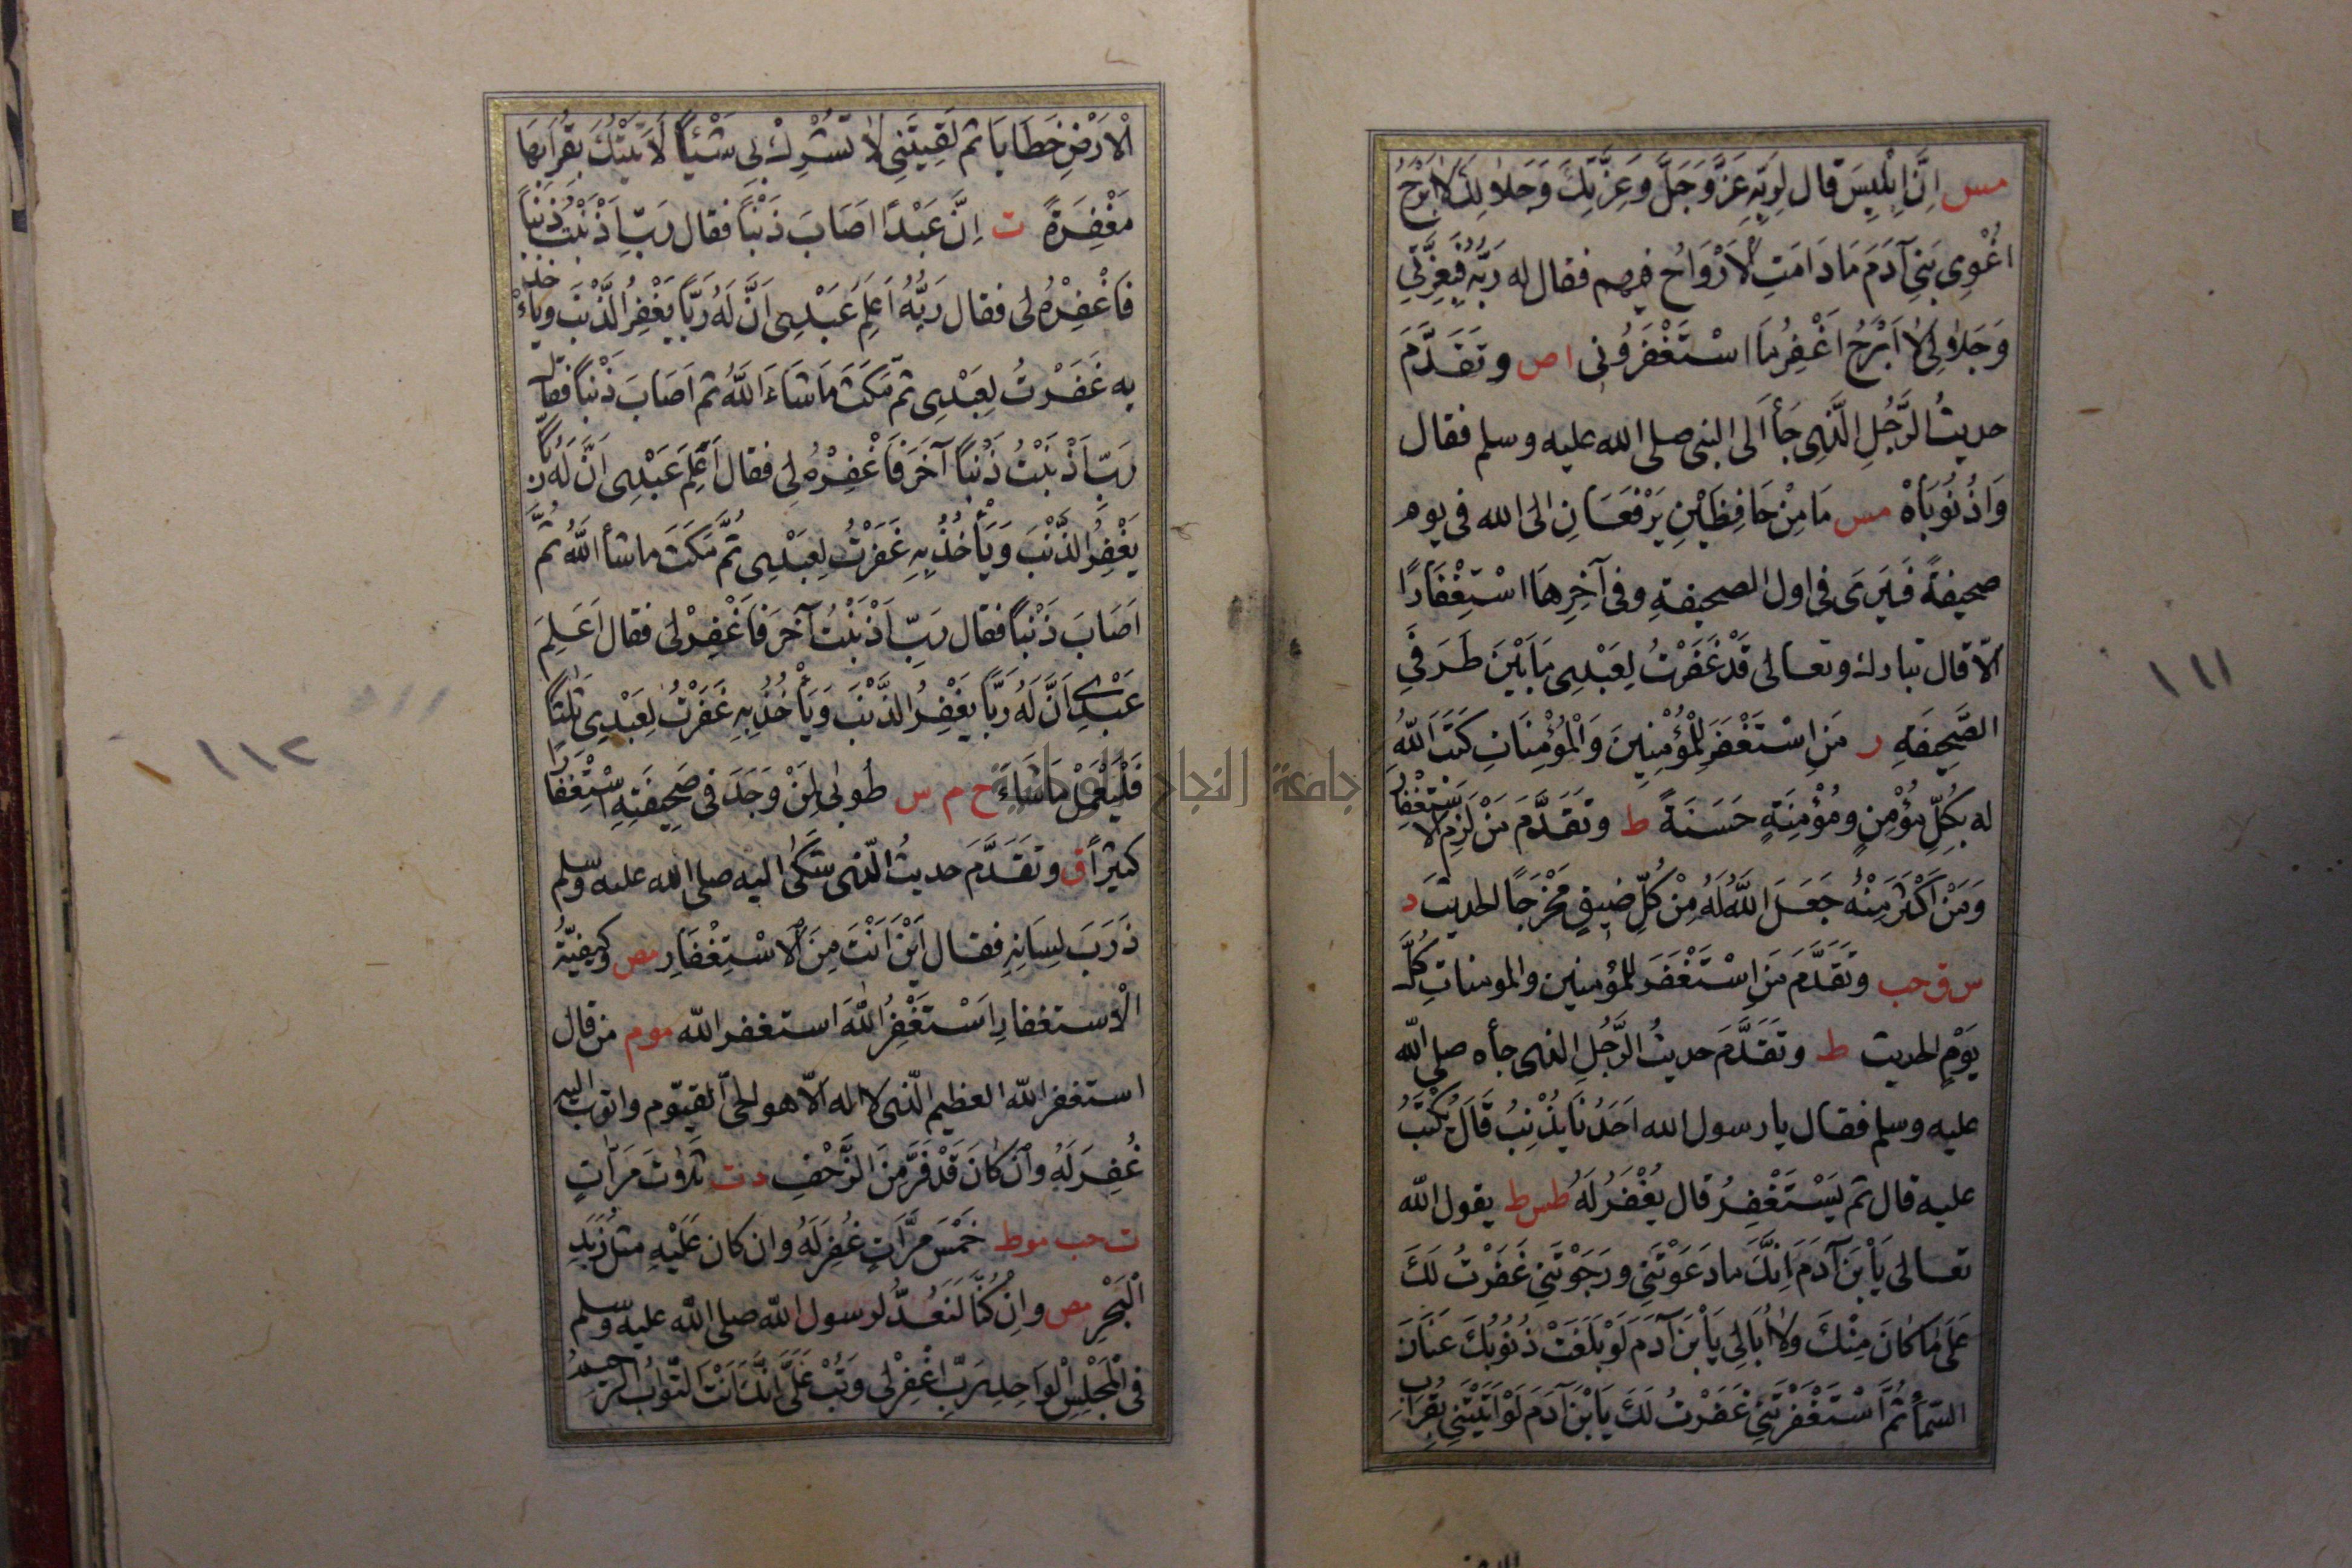 مس اِنَّ اِبْلِيسَ قال لِرَبِّهِ عَزَّ وَجَلَّ وَعِزَّتِكَ وَجَلَالِكَ لَا اَبْرَحُ
اُغْوِى بَنِى آدَمَ مَا دَامَتِ الْاَرْوَاحُ فيهم فقال له رَبُّهُ فَبِعِزَّتِى
وَجَلَالِى لَا اَبْرَحُ اَغْفِرُ مَا اسْتَغْفَرُونِى ا ص وتَقَدَّمَ
حديثُ الرَّجُلِ الَّذِى جَأَ اِلَى النبى صلى الله عليه وسلم فقال
وَاذُنُوبَاهْ مس مَا مِنْ حَافِظَيْنِ يَرْفَعَانِ الى الله فى يوم
صحيفةً فَيَرَى فى اول الصحيفةِ وفى آخِرِهَا اسْتِغْفَارًا
اِلَّا قال تبارك وتعالى قَدْ غَفَرْتُ لِعَبْدِى مَا بَيْنَ طَرَفَىِ
الصَّحِيفَةِ ر مَنِ اسْتَغْفَرَ لِلْمُؤْمِنِينَ وَالْمُؤْمِنَاتِ كَتَبَ اللَّهُ
له بِكُلِّ مُؤْمِنٍ ومُؤْمِنَةٍ حَسَنَةً ط وتَقَدَّمَ مَنْ لَزِمَ الاسْتِغْفَارَ
وَمَنْ اَكْثَرَ مِنْهُ جَعَلَ اللَّهُ لَهُ مِنْ كُلِّ ضِيقٍ مَخْرَجًا الحديثَ د
س ق حب وتَقَدَّمَ مَنِ اسْتَغْفَرَ للمؤمنين والمومنات كُلَّ
يَوْمٍ الحديث ط وتَقَدَّمَ حديثُ الرَّجُلِ الذى جأه صلى الله
عليه وسلم فقال يا رسول الله اَحَدُنَا يُذْنِبُ قَالَ يُكْتَبُ
عليه قال ثم يَسْتَغْفِرُ قال يُغْفَرُ لَهُ طس ط يقول الله
تعالى يَا بْنَ آدَمَ اِنَّكَ ما دَعَوْتَنِى ورَجَوْتَنِى غَفَرْتُ لَكَ
عَلَى مَا كَانَ مِنْكَ ولَا اُبَالِى يَا بْنَ آدَمَ لَوْ بَلَغَتْ ذُنُوبُكَ عَنَانَ
السَّمَأِ ثُمَّ اسْتَغْفَرْتَنِى غَفَرْتُ لَكَ يَا بْنَ آدَمَ لَوْ اَتَيْتَنِى بِقُرَابِ
١١١
الْاَرْضِ خَطَايَا ثم لَقِيتَنِى لَا تُشْرِكُ بِى شَيْئًا لَاَتَيْتُكَ بِقُرَابِهَا
مَغْفِرَةً ت اِنَّ عَبْدًا اَصَابَ ذَنْبًا فقال رَبِّ اَذْنَبْتُ ذَنْبًا
فَاغْفِرْهُ لِى فقال رَبُّهُ اَعَلِمَ عَبْدِى اَنَّ لَهُ رَبًّا يَغْفِرُ الذَّنْبَ ويَاْخذ
به غَفَرْتُ لِعَبْدِى ثم مَكَثَ مَا شَاءَ اللَّهُ ثم اَصَابَ ذَنْبًا فقال
رَبِّ اَذْنَبْتُ ذَنْبًا آخَرَ فَاغْفِرْهُ لِى فقال اَعَلِمَ عَبْدِى اَنَّ لَهُ رَبًّا
يَغْفِرُ الذَّنْبَ وَيَأْخُذُ بِهِ غَفَرْتُ لِعَبْدِى ثُمَّ مَكَثَ ما شأ اللَّهُ ثُمَّ
اَصَابَ ذَنْبًا فقال رَبِّ اَذْنَبْتُ آخَرَ فَاغْفِرْ لى فقال اَعَلِمَ
عَبْدِى اَنَّ لَهُ رَبًّا يَغْفِرُ الذَّنْبَ وَيَأْخُذُ بِهِ غَفَرْتُ لِعَبْدِى ثَلثًا
فَلْيَعْمَلْ مَا شَاءَ خ م س طُوبَى لِمَنْ وَجَدَ فى صَحِيفَتِهِ اسْتِغْفَارًا
كثيرًا ق وتَقَدَّمَ حديثُ الَّذى شَكَى اليه صلى الله عليه وسلم
ذَرَبَ لِسَانِهِ فقال اَيْنَ اَنْتَ مِنَ الْاسْتِغْفَارِ مص وكيفِيَّةُ
الْاستغفارِ اَسْتَغْفِرُ اللَّهَ استغفر الله مو م من قال
استغفر الله العظيم الَّذى لا اله اِلَّا هو الحىّ القيّوم واتوب اليه
غُفِرَ لَهُ وان كَانَ قَدْ فَرَّ مِنَ الزَّحْفِ د ت ثَلَاثَ مَرَّاتٍ
ت حب مو ط خَمْسَ مَرَّاتٍ غُفِرَ لَهُ وان كان عَلَيْهِ مثل زَبَدِ
الْبَحْرِ مص وانْ كُنَّا لَنَعُدُّ لرسول الله صلى الله عليه وسلم
فى الْمَجْلِسِ الْوَاحِدِ رَبِّ اغْفِرْ لِى وَتُبْ عَلَىَّ اِنَّكَ اَنْتَ التَّوَّابُ الرَّحِيمُ
١١٢
جامعة النجاح الوطنية